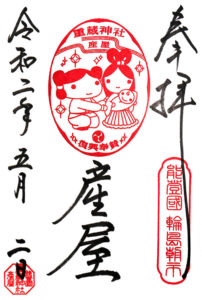 奉拝
能登國 輪島朝市
重蔵神社
産屋
復興奉賛
産屋
令和二年 五月 二日